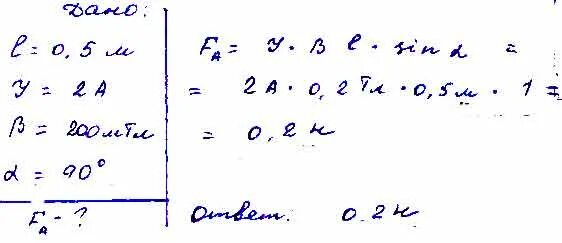 Дано:
l = 0,5 м
I = 2 А
B = 200 мТл
α = 90°
FА - ?
FА = I · B l · sin α =
= 2 А · 0,2 Тл · 0,5 м · 1 =
= 0,2 н
Ответ: 0.2 н